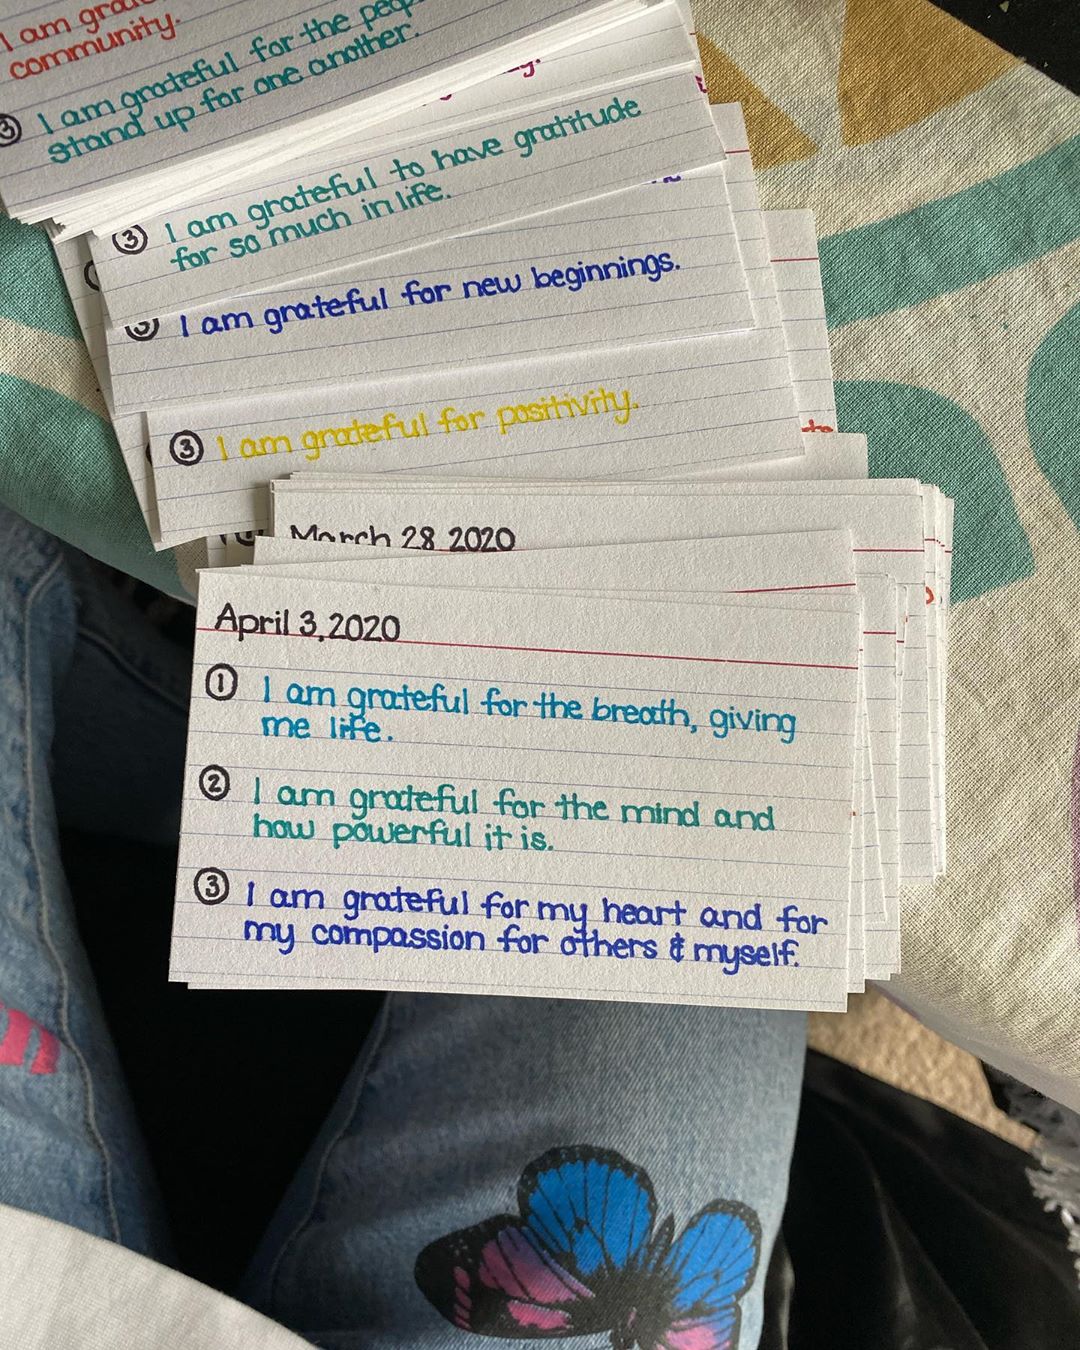 I am
community.
③ I am grateful for the
stand up for one another.
③ I am grateful to have gratitude
for so much in life.
I am grateful for new beginnings.
③ I am grateful for positivity.
to
March 28 2020
April 3, 2020
① I am grateful for the breath, giving
me life.
② I am grateful for the mind and
how powerful it is.
③ I am grateful for my heart and for
my compassion for others & myself.